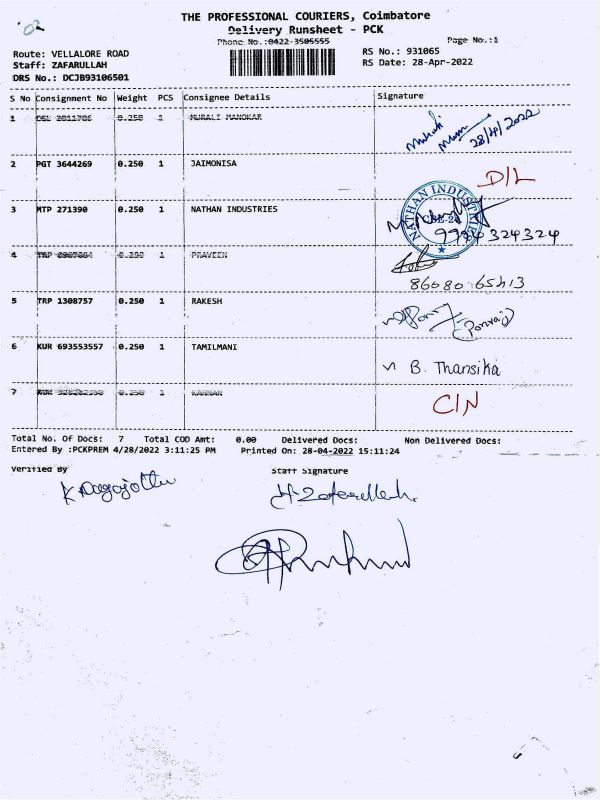 THE PROFESSIONAL COURIERS, Coimbatore
Delivery Runsheet - PCK
Phone No.:0422-3505555
Page No.:1
Route: VELLALORE ROAD
RS No.: 931065
Staff: ZAFARULLAH
RS Date: 28-Apr-2022
DRS No.: DCJB93106501
S No Consignment No Weight PCS Consignee Details Signature
1 0.250 1 MURALI MANOKAR
28/4/2022
2 PGT 3644269 0.250 1 JAIMONISA
D/L
3 MTP 271390 0.250 1 NATHAN INDUSTRIES
NATHAN INDUSTRIES
9994324324
4 0.250 1 PRAVEEN
86080 65413
5 TRP 1308757 0.250 1 RAKESH
Ponraj
6 KUR 693553557 0.250 1 TAMILMANI
B. Thansika
7 0.250 1 KANNAN
C/N
Total No. Of Docs: 7 Total COD Amt: 0.00 Delivered Docs: Non Delivered Docs:
Entered By :PCKPREM 4/28/2022 3:11:25 PM Printed On: 28-04-2022 15:11:24
Verified By
Staff Signature